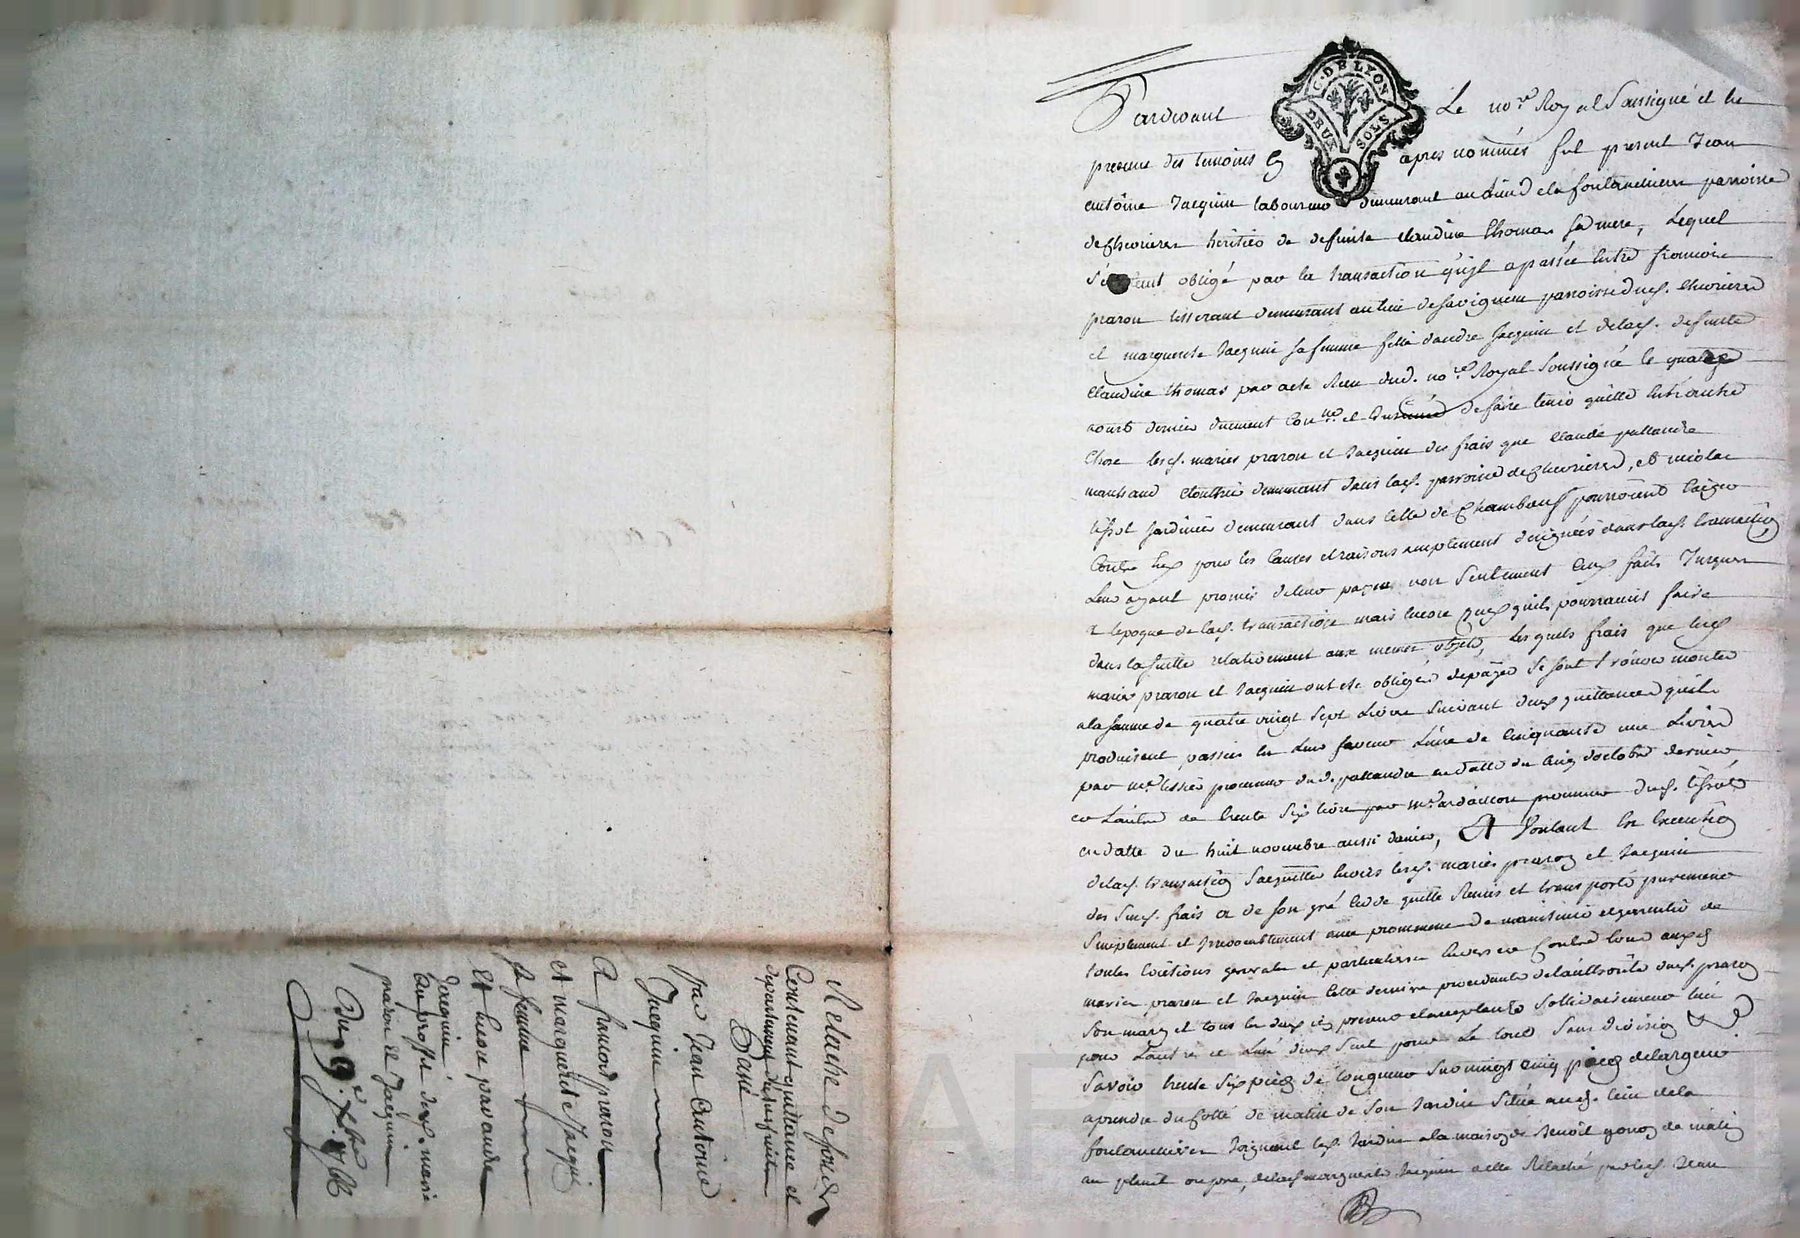 G. DE LYON
DEUX SOLS
Pardevant Le no.re Royal Soussigné et En
presence des temoins Cy apres nommés fut present Jean
antoine Jacquin laboureur demeurant au lieu de la fontanchieere parroisse
de Chevrieres heritier de defunte Claudine Thomas sa mere, Lequel
obligé par la transaction qu'il a passée Entre francois
praron tisserant demeurant au lieu de Savigneux parroisse dud. Chevrieres
et marguerite Jacquin sa femme fille d'andre Jacquin et de lad. defunte
Claudine thomas par acte Recu dud. no.re Royal Soussigné le quatre
aout dernier duement Con.lé et de faire tenir quitte Entre autre
Chose lesd. mariés praron et Jacquin des frais que Claude pallandre
marchand demeurant dans lad. parroisse de Chevrieres, et nicolas
tissot Jardinier demeurant dans Celle de Chambœuf pourroient Exiger
Contre Eux pour les Causes et raisons amplement designées dans lad. transaction
Leur ayant promis de leur payer non Seulement Ceux faits Jusques
a lepoque de lad. transaction mais Encore Ceux quils pourroient faire
dans la suitte relativement aux memes objets, Lesquels frais que lesd.
mariés praron et Jacquin ont été obligés de payer Se sont trouvés monter
a la somme de quatre vingt Sept Livres Suivant deux quittances qu'ils
produisent passées En Leur faveur L'une de Cinquante une Livres
par m.e procureur dud. pallandre en datte du Cinq d'octobre dernier
et Lautre de trente Six livres par m.e ardaillon procureur dud. tissot
en datte du huit novembre aussi dernier, Et Voulant En Execution
de lad. transaction Sacquitter Envers lesd. mariés praron et Jacquin
des Susd. frais a de son gré Cedé quitté Remis et transporté purement
Simplement et Irrevocablement avec promesse de maintenir et garentir de
toutes Evictions generales et particulieres Envers et Contre tous auxd.
mariés praron et Jacquin Cette derniere procedante de lauthorité dud. praron
Son mary et tous les deux icy presents et acceptants Sollidairement L'un
pour Lautre et L'un d'eux Seul pour Le tout Sans division
Savoir trente Six pieds de longueur Sur vingt Cinq pieds de largeur
a prendre du Cotté de matin de Son Jardin Situé aud. lieu de la
fontanchieere Joignant led. Jardin a la maison de Benoit gonon de matin
au plaid de lad. marguerite Jacquin a elle Relaché par led. Jean
Relache de fonds
Contenant quittance et
Passé
par Jean Antoine
Jacquin
A francois praron
et marguerite Jacquin
sa femme
Et Encore par andre
Jacquin
au proffit desd. mariés
praron et Jacquin
Du 9e Xbre 1786